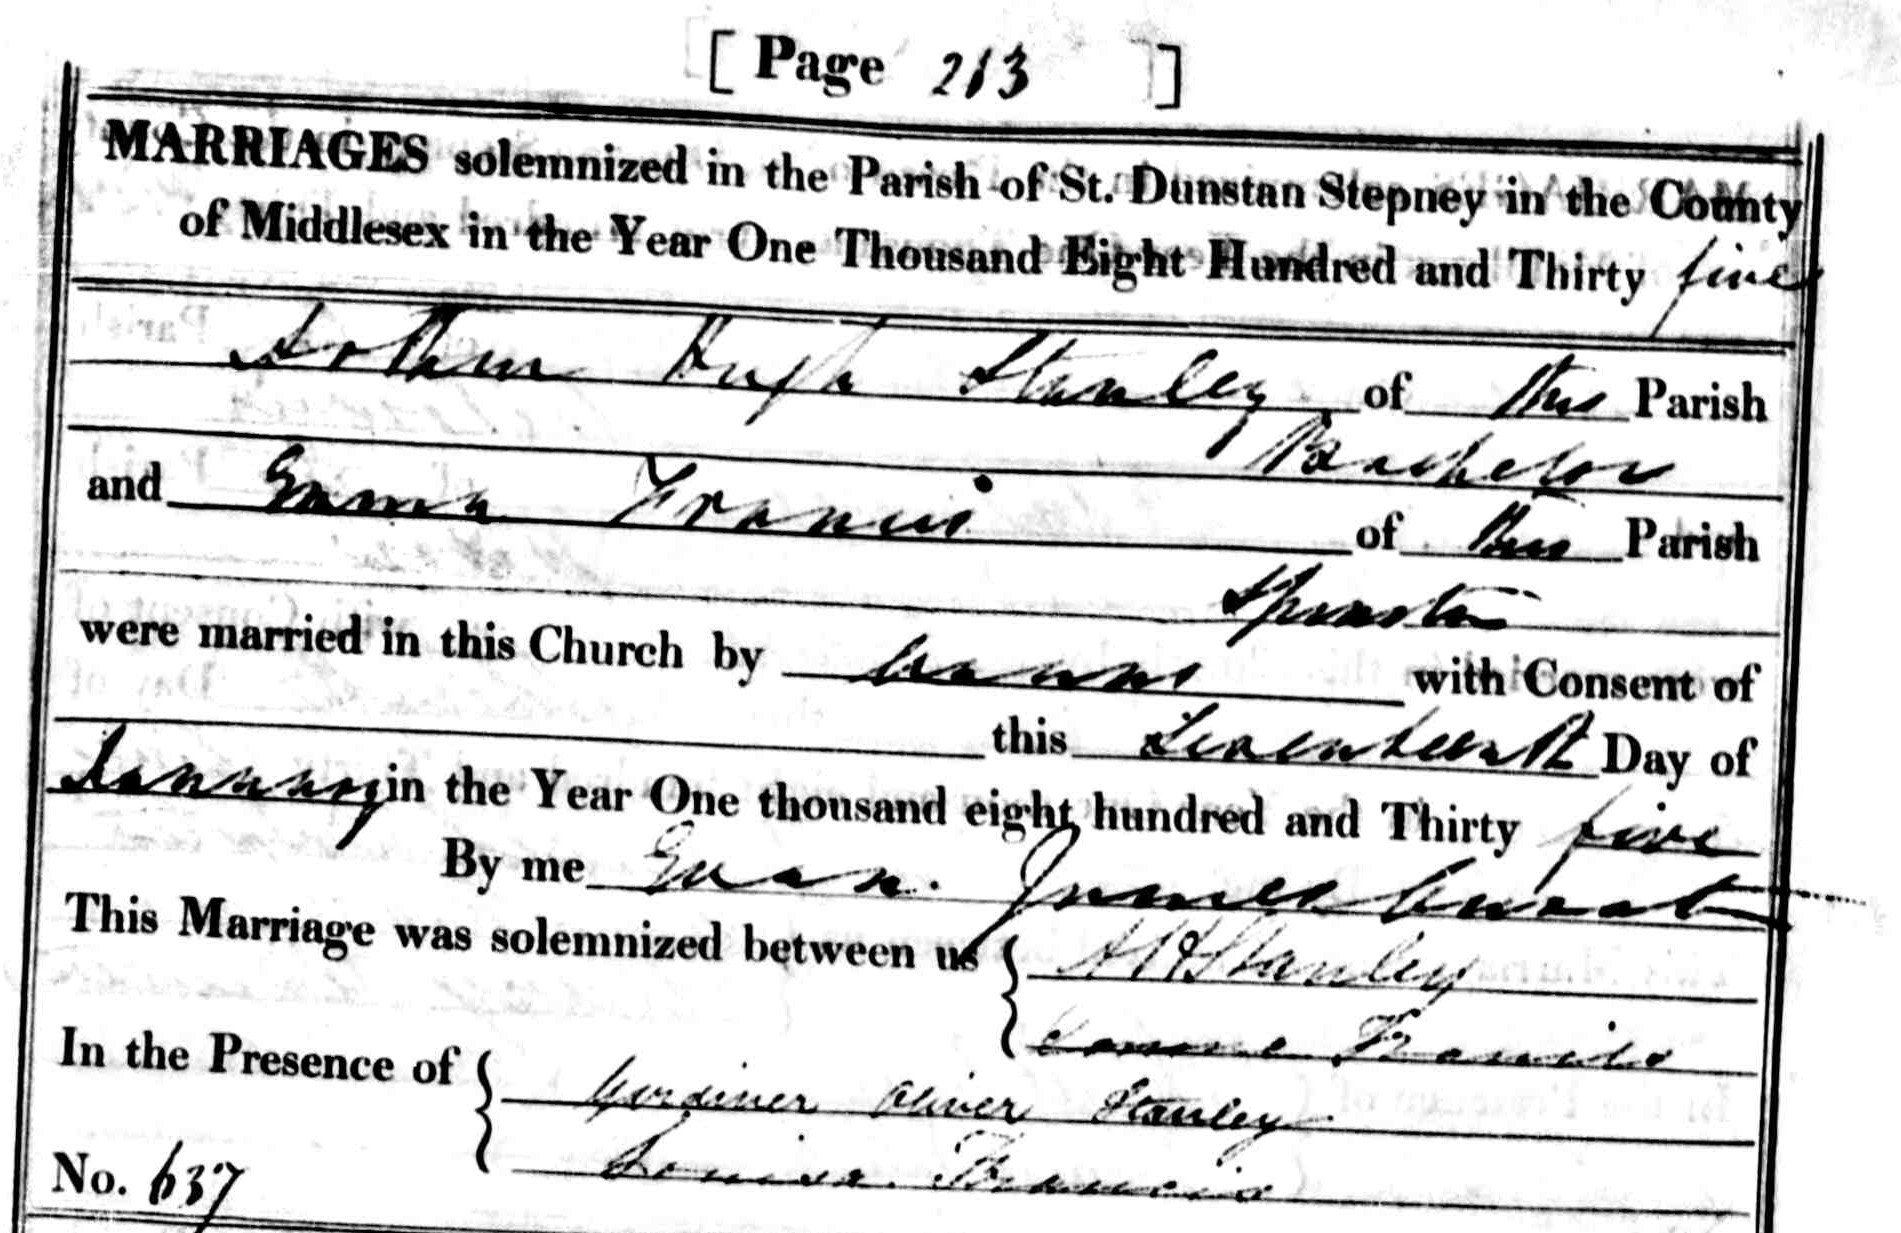 [ Page 213 ]
MARRIAGES solemnized in the Parish of St. Dunstan Stepney in the County
of Middlesex in the Year One Thousand Eight Hundred and Thirty five
Arthur Hugh Stanley of this Parish
Bachelor
and Emma Francis of this Parish
Spinster
were married in this Church by banns with Consent of
this Seventeenth Day of
January in the Year One thousand eight hundred and Thirty five
By me Evan James Curat
This Marriage was solemnized between us { A H Stanley
Emma Francis
In the Presence of { Gardiner Oliver Stanley
Louisa Francis
No. 637